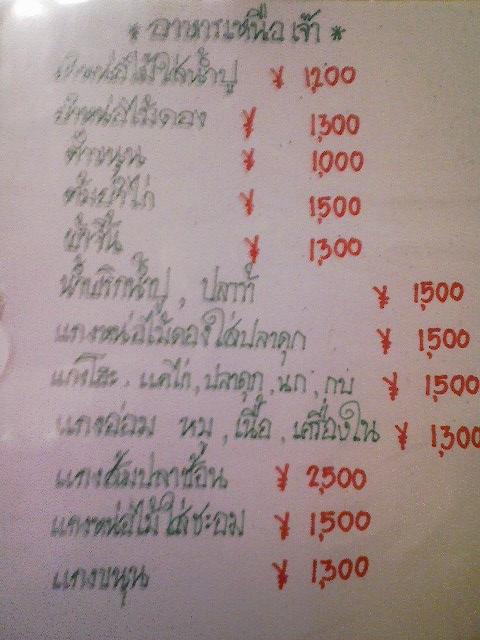 * อาหารเหนือ เจ๊า *
ยำหน่อไม้ใส่น้ำปู ¥ 1,200
ยำหน่อไม้ดอง ¥ 1,300
ตำขนุน ¥ 1,000
ต้มยำไก่ ¥ 1,500
ยำจิ้น ¥ 1,300
น้ำพริกน้ำปู , ปลาทู ¥ 1,500
แกงหน่อไม้ดองใส่ปลาดุก ¥ 1,500
แกงโฮะ , แคไก่ , ปลาดุก , นก , กบ ¥ 1,500
แกงอ่อม หมู , เนื้อ , เครื่องใน ¥ 1,300
แกงส้มปลาช่อน ¥ 2,500
แกงหน่อไม้ใส่ชะอม ¥ 1,500
แกงขนุน ¥ 1,300